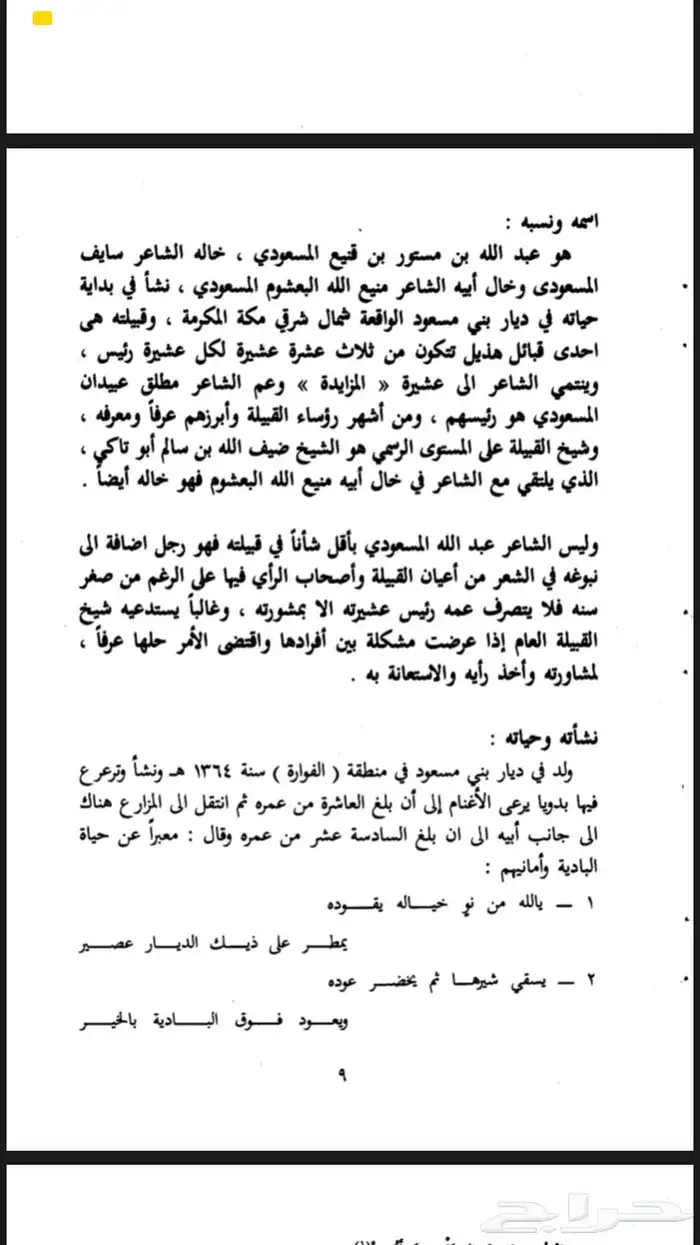 اسمه ونسبه :
هو عبد الله بن مستور بن قنيع المسعودي ، خاله الشاعر سايف
المسعودى وخال أبيه الشاعر منيع الله البعشوم المسعودي ، نشأ في بداية
حياته في ديار بني مسعود الواقعة شمال شرقي مكة المكرمة ، وقبيلته هى
احدى قبائل هذيل تتكون من ثلاث عشرة عشيرة لكل عشيرة رئيس ،
وينتمي الشاعر الى عشيرة « المزايدة » وعم الشاعر مطلق عبيدان
المسعودي هو رئيسهم ، ومن أشهر رؤساء القبيلة وأبرزهم عرفاً ومعرفه ،
وشيخ القبيلة على المستوى الرسمي هو الشيخ ضيف الله بن سالم أبو تاكي ،
الذي يلتقي مع الشاعر في خال أبيه منيع الله البعشوم فهو خاله أيضاً .
وليس الشاعر عبد الله المسعودي بأقل شأناً في قبيلته فهو رجل اضافة الى
نبوغه في الشعر من أعيان القبيلة وأصحاب الرأي فيها على الرغم من صغر
سنه فلا يتصرف عمه رئيس عشيرته الا بمشورته ، وغالباً يستدعيه شيخ
القبيلة العام إذا عرضت مشكلة بين أفرادها واقتضى الأمر حلها عرفاً ،
لمشاورته وأخذ رأيه والاستعانة به .
نشأته وحياته :
ولد في ديار بني مسعود في منطقة ( الفوارة ) سنة ١٣٦٤ هـ ونشأ وترعرع
فيها بدويا يرعى الأغنام إلى أن بلغ العاشرة من عمره ثم انتقل الى المزارع هناك
الى جانب أبيه الى ان بلغ السادسة عشر من عمره وقال : معبراً عن حياة
البادية وأمانيهم :
١ ــ يالله من نوٍ خيـاله يقـوده
يمطـر على ذيـك الديـار عصـير
٢ ــ يسقي شيرهـا ثم يخضـر عوده
ويعـود فـوق البـادية بالخيـر
٩
حراج